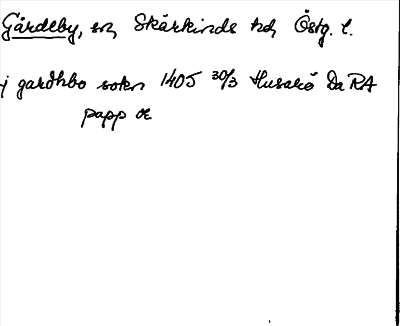 Gårdeby, sn, Skärkinds hd, Östg. l.
j gardhbo sokn 1405 30/3 Husarö Da RA
papp or